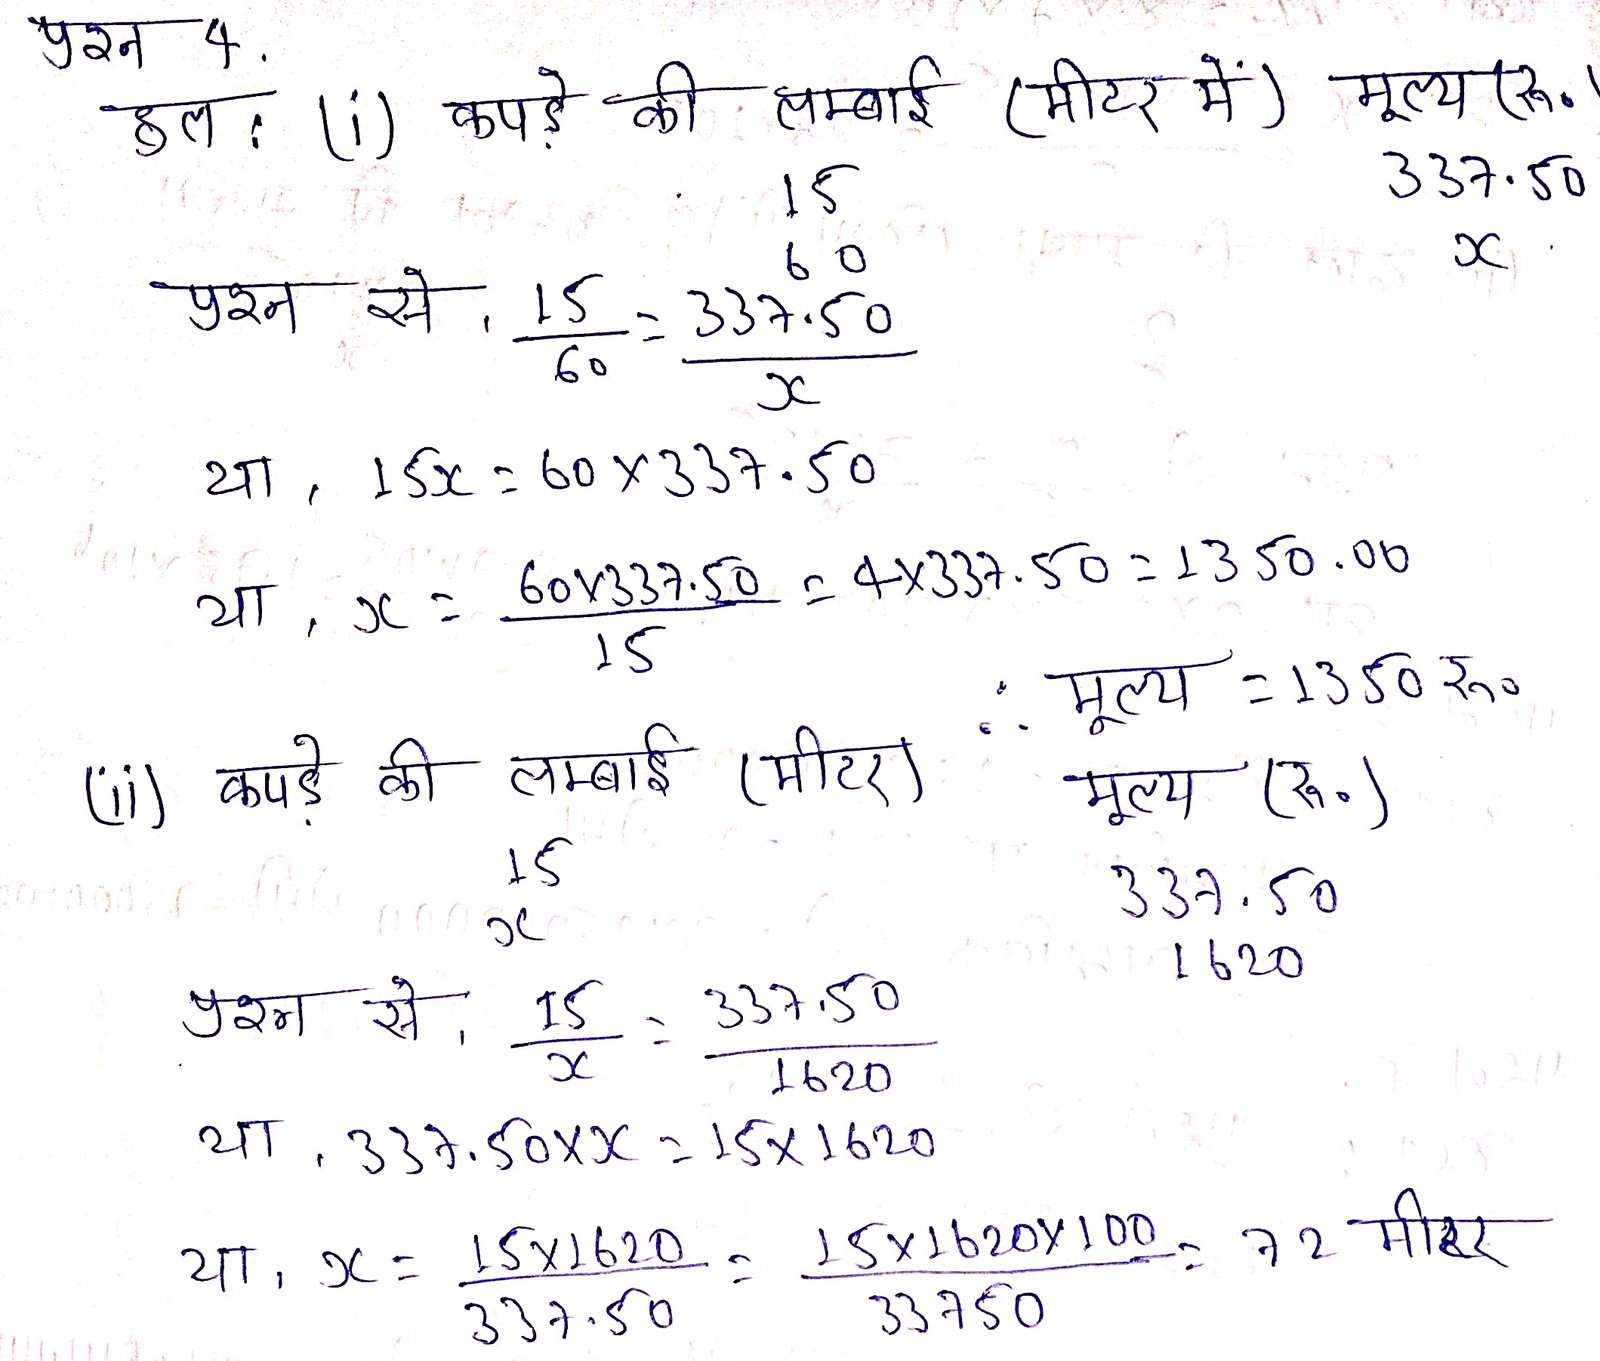 प्रश्न 4.
हल : (i) कपड़े की लम्बाई (मीटर में) मूल्य (रू.)
15 337.50
60 x
प्रश्न से, 15/60 = 337.50/x
या, 15x = 60 × 337.50
या, x = 60×337.50/15 = 4×337.50 = 1350.00
∴ मूल्य = 1350 रू०
(ii) कपड़े की लम्बाई (मीटर) मूल्य (रू.)
15 337.50
x 1620
प्रश्न से, 15/x = 337.50/1620
या, 337.50×x = 15×1620
या, x = 15×1620/337.50 = 15×1620×100/33750 = 72 मीटर